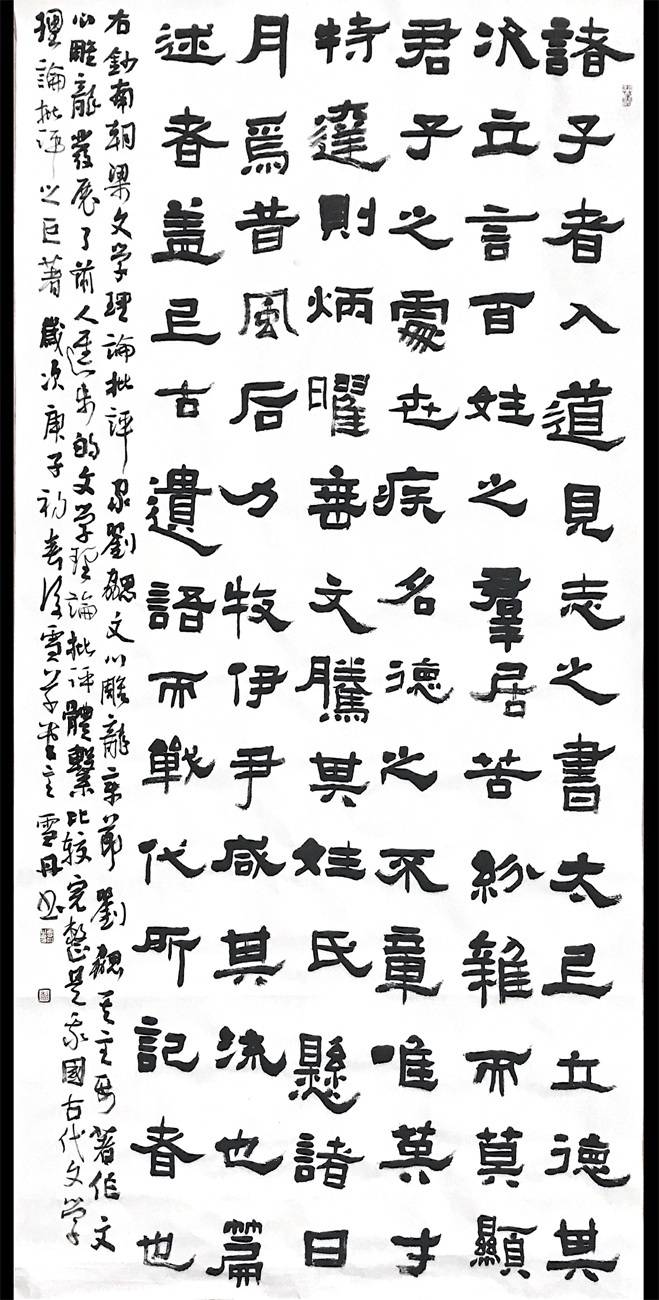 諸子者入道見志之書太上立德其
次立言百姓之羣居苦紛雜而莫顯
君子之處世疾名德之不章唯英才
特達則炳曜垂文騰其姓氏懸諸日
月焉昔風后力牧伊尹咸其流也篇
述者蓋上古遺語而戰代所記者也
右鈔南朝梁文學理論批評家劉勰文心雕龍章節劉勰其主要著作文
心雕龍發展了前人進步的文學理論批評體繫比较完整是我國古代文學
理論批評之巨著歲次庚子初春雪草堂主雪丹書